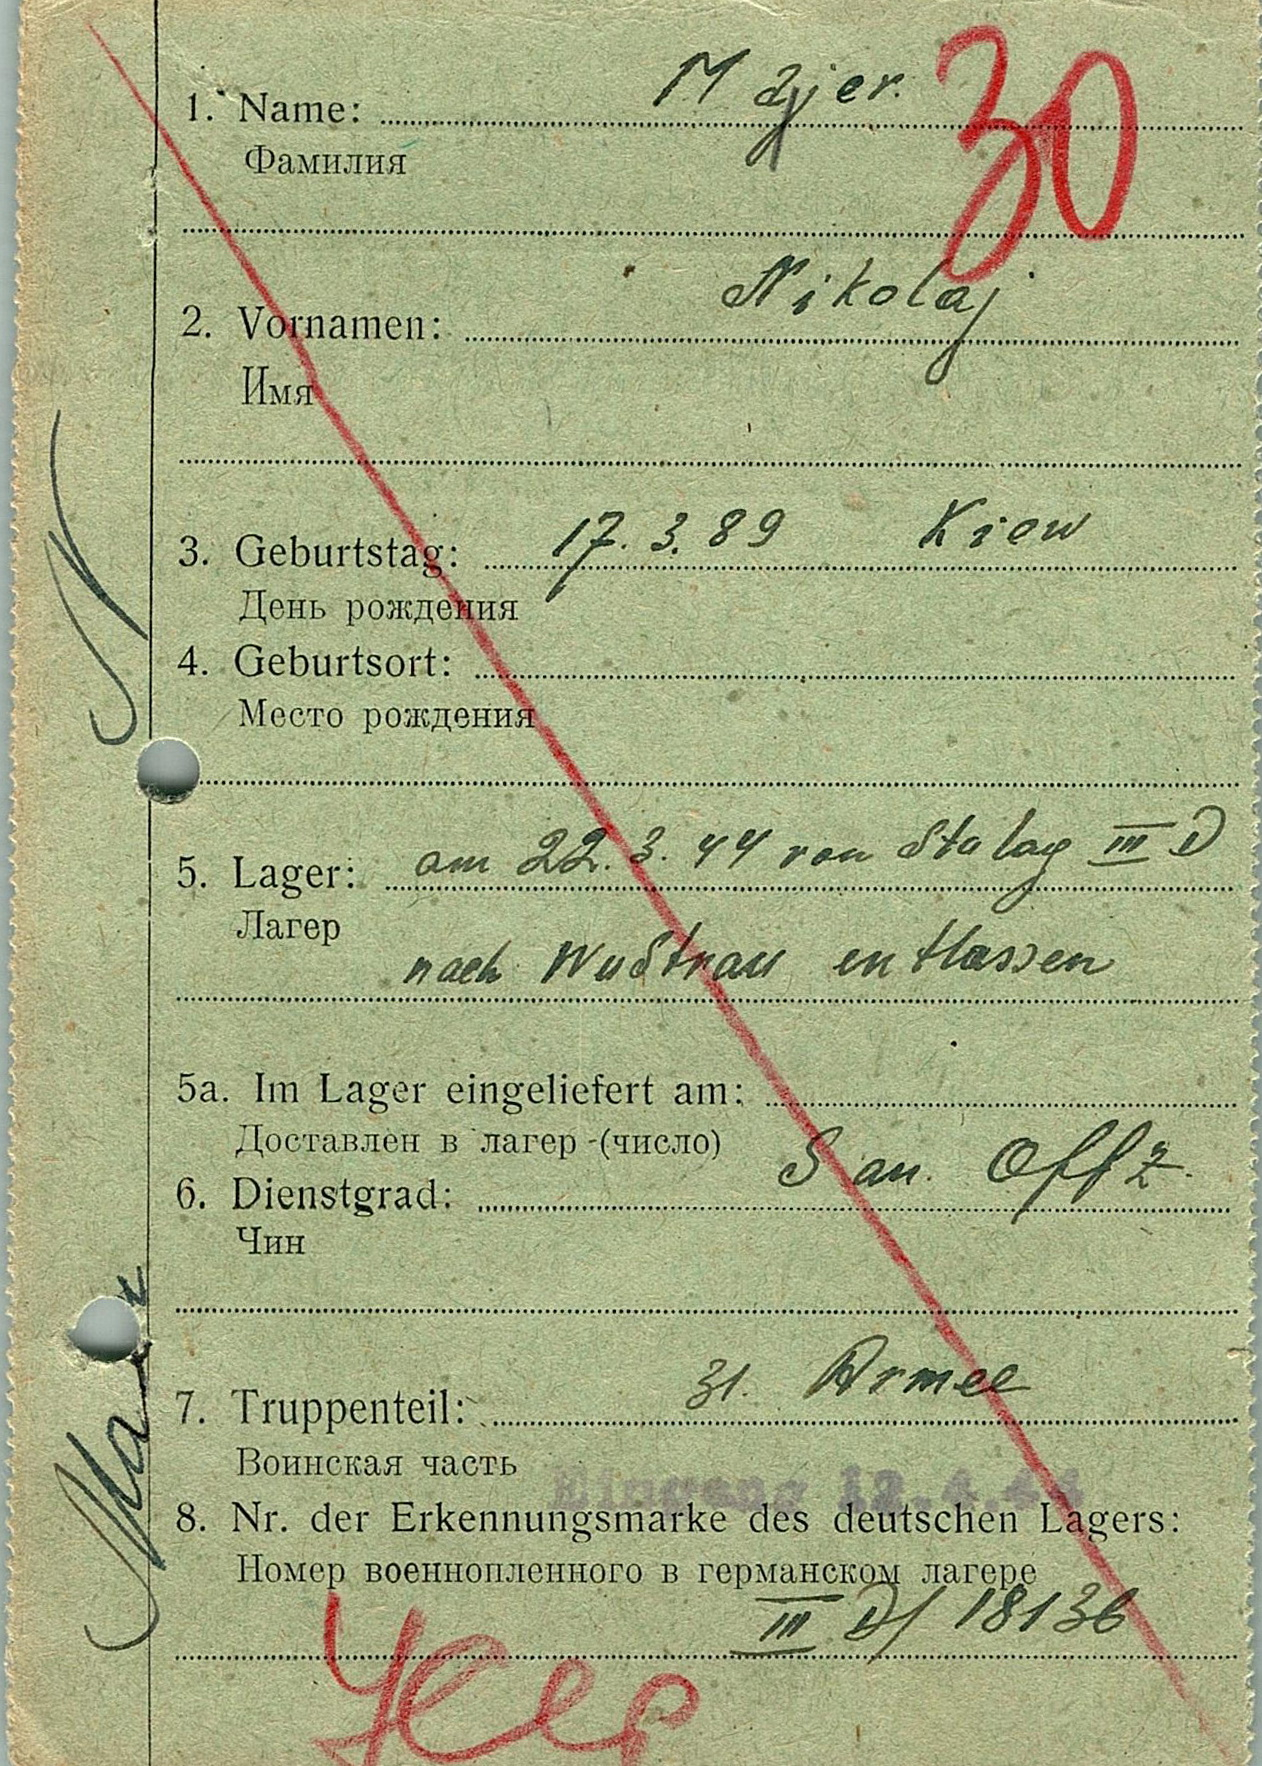 30
1. Name: Majer.
Фамилия
2. Vornamen: Nikolaj
Имя
3. Geburtstag: 17. 3. 89 Kiew
День рождения
4. Geburtsort:
Место рождения
5. Lager: am 22. 3. 44 von Stalag III D
Лагер
nach Wustrau entlassen
5a. Im Lager eingeliefert am:
Доставлен в лагер (число)
6. Dienstgrad: San. Offz.
Чин
7. Truppenteil: 31. Armee
Воинская часть
Eingang 12.4.44
8. Nr. der Erkennungsmarke des deutschen Lagers:
Номер военнопленного в германском лагере
III D/ 18136